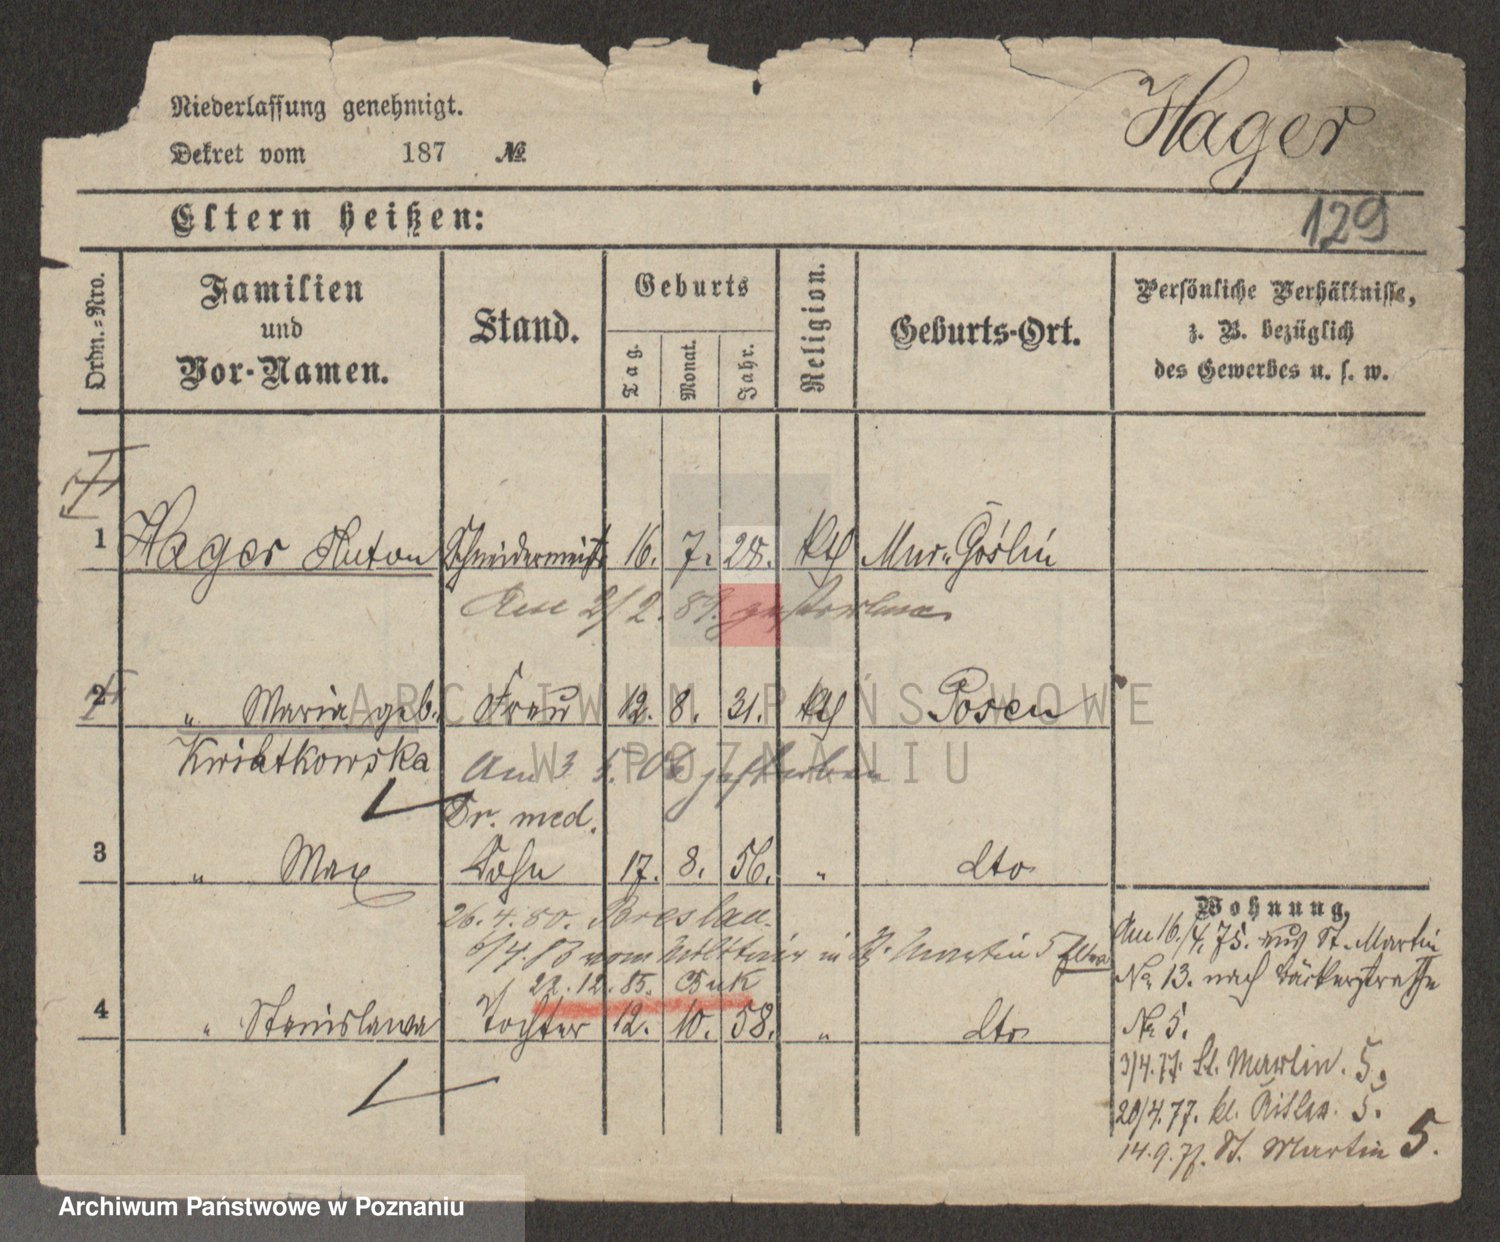 Niederlassung genehmigt.
Hager
Dekret vom 187 №
Eltern heißen:
129
Ordn.-Nro.
Familien
und
Vor-Namen.
Stand.
Geburts
Tag.
Monat.
Jahr.
Religion.
Geburts-Ort.
Persönliche Verhältnisse,
z. B. bezüglich
des Gewerbes u. s. w.
1 Hager Anton Schneidermeistr 16. 7. 28. kth Mur. Goslin
Am 2/2. 89. gestorben
2 " Maria geb. Frau 12. 8. 31. kth Posen
Kwiatkowska Am 3 5. 06 gestorben
Dr. med.
3 " Max Sohn 17. 8. 56. " dto
26. 4. 80. Breslau.
6/4. 83 vom Militair in St. Martin 5
22. 12. 85. Buk
4 " Stanislawa Tochter 12. 10. 58. " dto
Wohnung.
Am 16./4. 75. aus St. Martin
No 13. nach Bäckerstrasse
No 5.
3/4. 77. St. Martin. 5.
20/4. 77. kl. Ritter. 5.
14. 9. 77. St. Martin 5.
ARCHIWUM PAŃSTWOWE
W POZNANIU
Archiwum Państwowe w Poznaniu